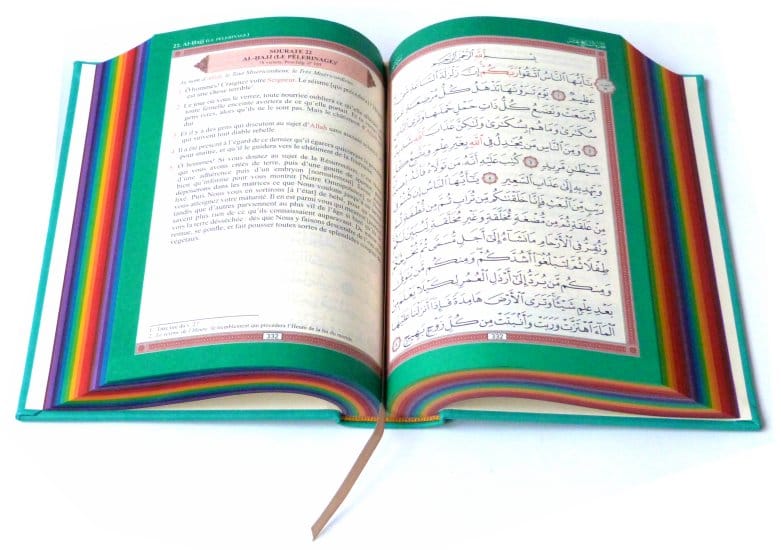 22. Al-Hajj (LE PÈLERINAGE)
SOURATE 22
AL-HAJJ (LE PÈLERINAGE)¹
78 versets, Post-hég. n° 103
Au nom d'Allah, le Tout Miséricordieux, le Très Miséricordieux.
1. Ô hommes! Craignez votre Seigneur. Le séisme [qui précédera]
est une chose terrible.
2. Le jour où vous le verrez, toute nourrice oubliera ce qu'elle
toute femelle enceinte avortera de ce qu'elle portait. Et tu
gens ivres, alors qu'ils ne le sont pas. Mais le châtiment d'Allah
dur.
3. Et il y a des gens qui discutent au sujet d'Allah sans aucune
qui suivent tout diable rebelle.
4. Il a été prescrit à l'égard de ce dernier qu'il égarera quiconque le
pour maître, et qu'il le guidera vers le châtiment de la
5. Ô hommes! Si vous doutez au sujet de la Résurrection,
qui vous avons créés de terre, puis d'une goutte de
d'une adhérence puis d'un embryon [normalement]
bien qu'informe pour vous montrer [Notre Omnipotence]
déposerons dans les matrices ce que Nous voulons jusqu'à un
fixé. Puis Nous vous en sortirons [à l'état] de bébé, pour
vous atteignez votre maturité. Il en est parmi vous qui meurent
tandis que d'autres parviennent au plus vil de l'âge si bien
savent plus rien de ce qu'ils connaissaient auparavant. De
vois la terre desséchée: dès que Nous y faisons descendre de l'eau
remue, se gonfle, et fait pousser toutes sortes de splendides
végétaux.
1 Titre tiré du v. 27.
2 Le séisme de l'Heure: le tremblement qui précédera l'Heure de la fin du monde.
332
بسم الله الرحمن الرحيم
يأيها الناس اتقوا ربكم إن زلزلة الساعة شيء
عظيم ١ يوم ترونها تذهل كل مرضعة عما
أرضعت وتضع كل ذات حمل حملها وترى الناس
سكرى وما هم بسكرى ولكن عذاب الله شديد
٢ ومن الناس من يجدل في الله بغير علم ويتبع كل
شيطن مريد ٣ كتب عليه أنه من تولاه فأنه يضله
ويهديه إلى عذاب السعير ٤ يأيها الناس إن كنتم في
ريب من البعث فإنا خلقنكم من تراب ثم من نطفة ثم
من علقة ثم من مضغة مخلقة وغير مخلقة لنبين لكم
ونقر في الأرحام ما نشاء إلى أجل مسمى ثم نخرجكم
طفلا ثم لتبلغوا أشدكم ومنكم من يتوفى
ومنكم من يرد إلى أرذل العمر لكيلا يعلم من
بعد علم شيئا وترى الأرض هامدة فإذا أنزلنا عليها
الماء اهتزت وربت وأنبتت من كل زوج بهيج ٥
332